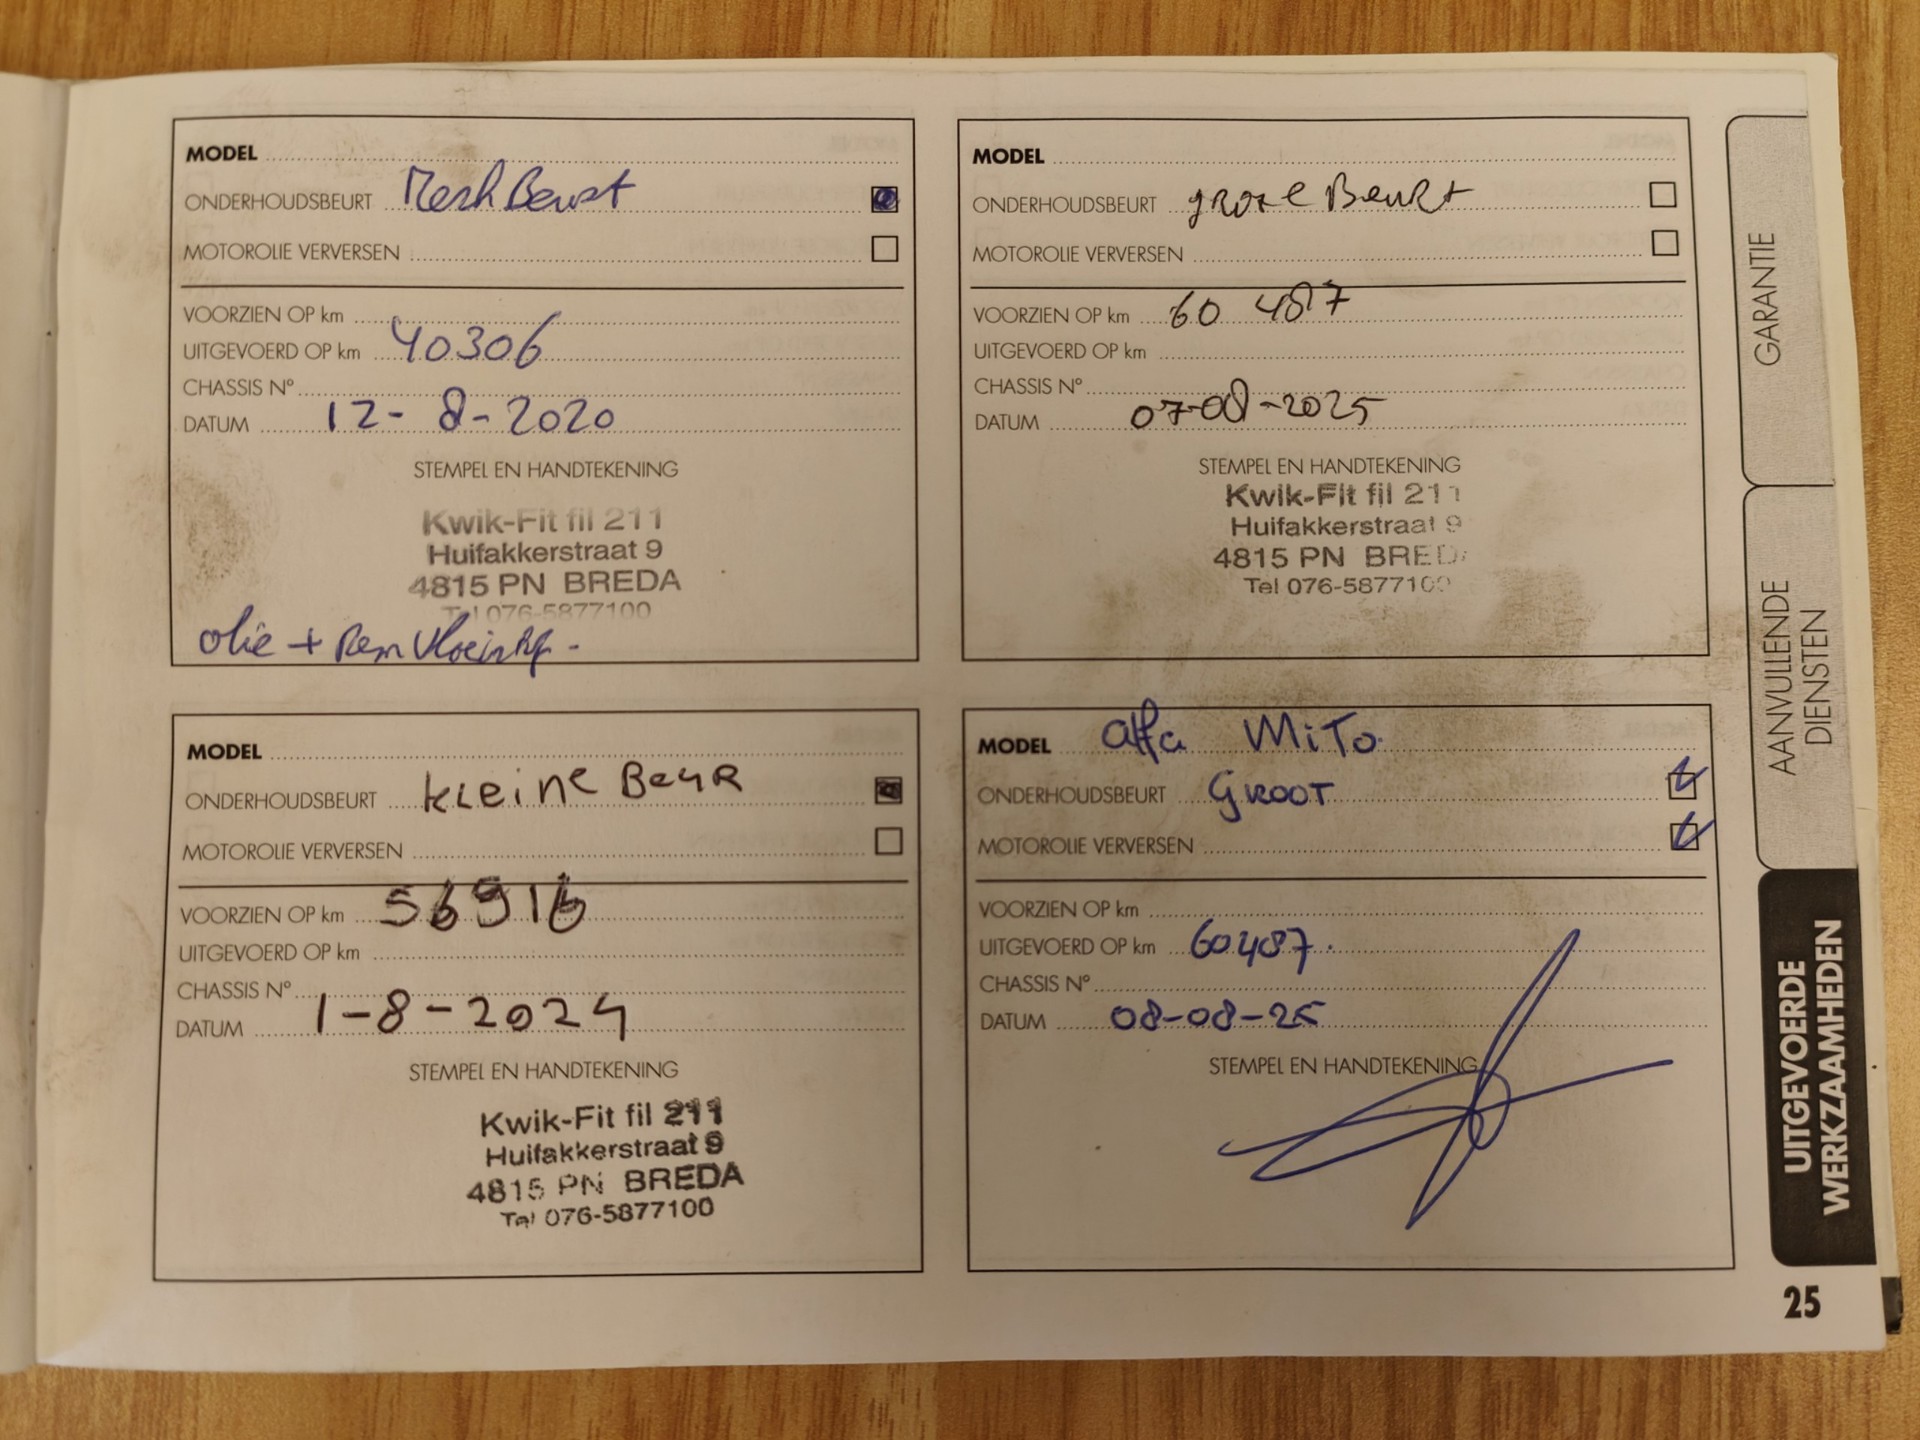 MODEL
ONDERHOUDSBEURT Merk Beurt
MOTOROLIE VERVERSEN
VOORZIEN OP km
UITGEVOERD OP km 40306
CHASSIS Nº
DATUM 12-8-2020
STEMPEL EN HANDTEKENING
Kwik-Fit fil 211
Huifakkerstraat 9
4815 PN BREDA
Tel 076-5877100
olie + Rem Vloeistof -
MODEL
ONDERHOUDSBEURT grote Beurt
MOTOROLIE VERVERSEN
VOORZIEN OP km 60 487
UITGEVOERD OP km
CHASSIS Nº
DATUM 07-08-2025
STEMPEL EN HANDTEKENING
Kwik-Fit fil 211
Huifakkerstraat 9
4815 PN BREDA
Tel 076-5877100
MODEL
ONDERHOUDSBEURT KLeine Beur
MOTOROLIE VERVERSEN
VOORZIEN OP km 56916
UITGEVOERD OP km
CHASSIS Nº
DATUM 1-8-2024
STEMPEL EN HANDTEKENING
Kwik-Fit fil 211
Huifakkerstraat 9
4815 PN BREDA
Tel 076-5877100
MODEL alfa MiTo
ONDERHOUDSBEURT GROOT
MOTOROLIE VERVERSEN
VOORZIEN OP km
UITGEVOERD OP km 60.487.
CHASSIS Nº
DATUM 08-08-25
STEMPEL EN HANDTEKENING
GARANTIE
AANVULLENDE
DIENSTEN
UITGEVOERDE
WERKZAAMHEDEN
25